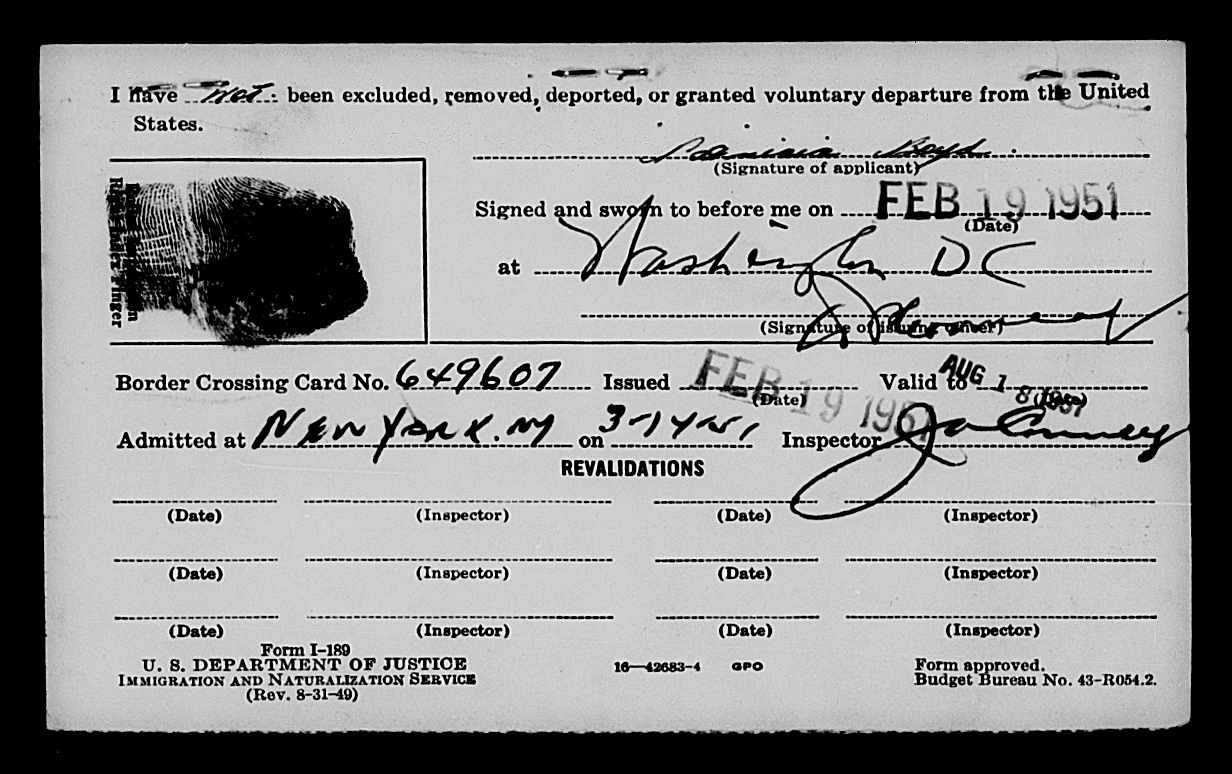 I have not been excluded, removed, deported, or granted voluntary departure from the United
States.
Boyd
(Signature of applicant)
Signed and sworn to before me on FEB 19 1951
(Date)
at Washington DC
(Signature of issuing officer)
Right Index Finger
Border Crossing Card No. 649607 Issued FEB 19 1951 Valid to AUG 18 1951
(Date) (Date)
Admitted at New York. NY on 3-14-51 Inspector
REVALIDATIONS
(Date) (Inspector) (Date) (Inspector)
(Date) (Inspector) (Date) (Inspector)
(Date) (Inspector) (Date) (Inspector)
Form I-189
U. S. DEPARTMENT OF JUSTICE 16—42683-4 GPO Form approved.
IMMIGRATION AND NATURALIZATION SERVICE Budget Bureau No. 43-R054.2.
(Rev. 8-31-49)